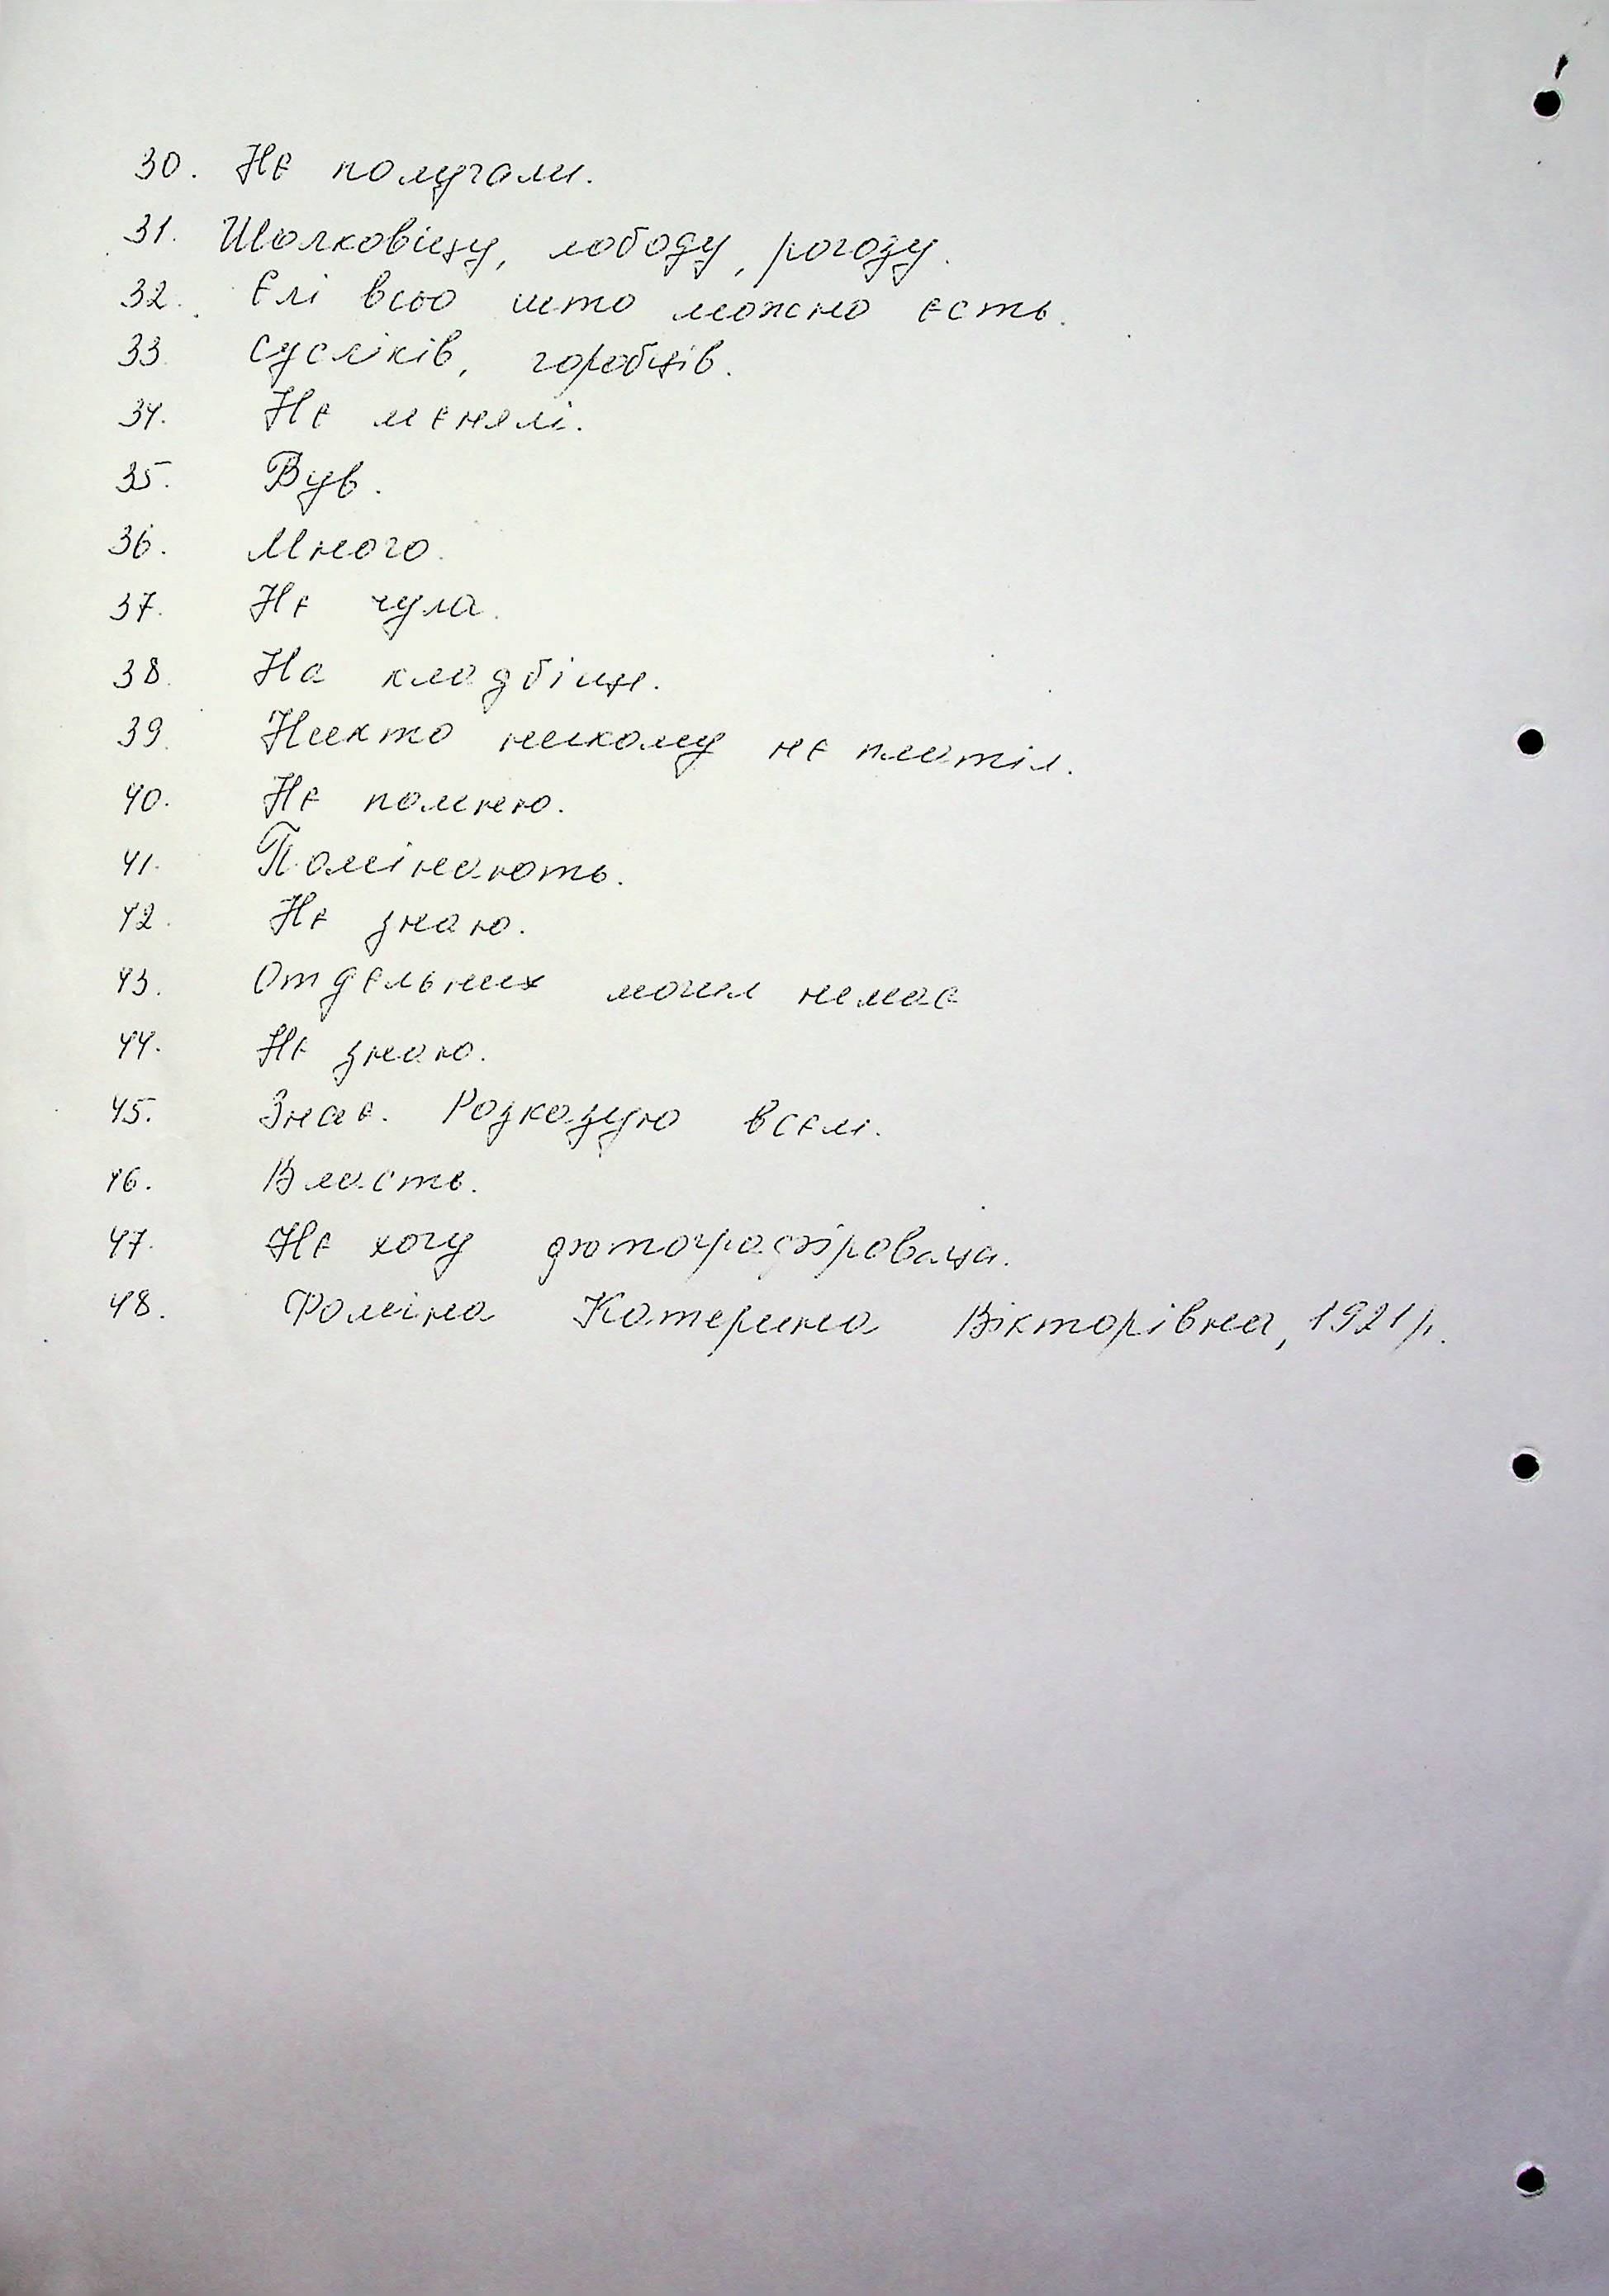 30. Не получали.
31. Шолковіцу, лободу, рогозу.
32. Єлі всьо што можно єсть.
33. Сусліків, горобців.
34. Нє мєнялі.
35. Був.
36. Много.
37. Нє чула.
38. На кладбіще.
39. Никто никому нє платіл.
40. Нє помню.
41. Помінають.
42. Нє знаю.
43. Отдєльних могил немає
44. Нє знаю.
45. Знає. Розказую всєм.
46. Власть.
47. Нє хочу фотографіроваца.
48. Фоміна Катерина Вікторівна, 1921 р.